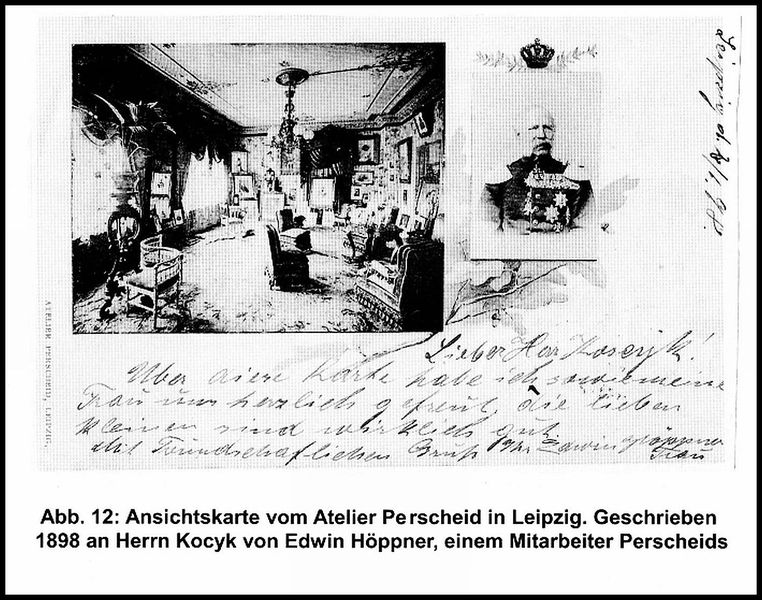 Leipzig d.
ATELIER PERSCHEID, LEIPZIG.
Lieber Herr Koscyk!
Über diese Karte habe ich sowie meine
Frau uns herzlich gefreut, die lieben
Kleinen sind wirklich gut
Mit Freundschaftlichen Gruß Ihr Edwin Höppner
Frau
Abb. 12: Ansichtskarte vom Atelier Perscheid in Leipzig. Geschrieben
1898 an Herrn Kocyk von Edwin Höppner, einem Mitarbeiter Perscheids